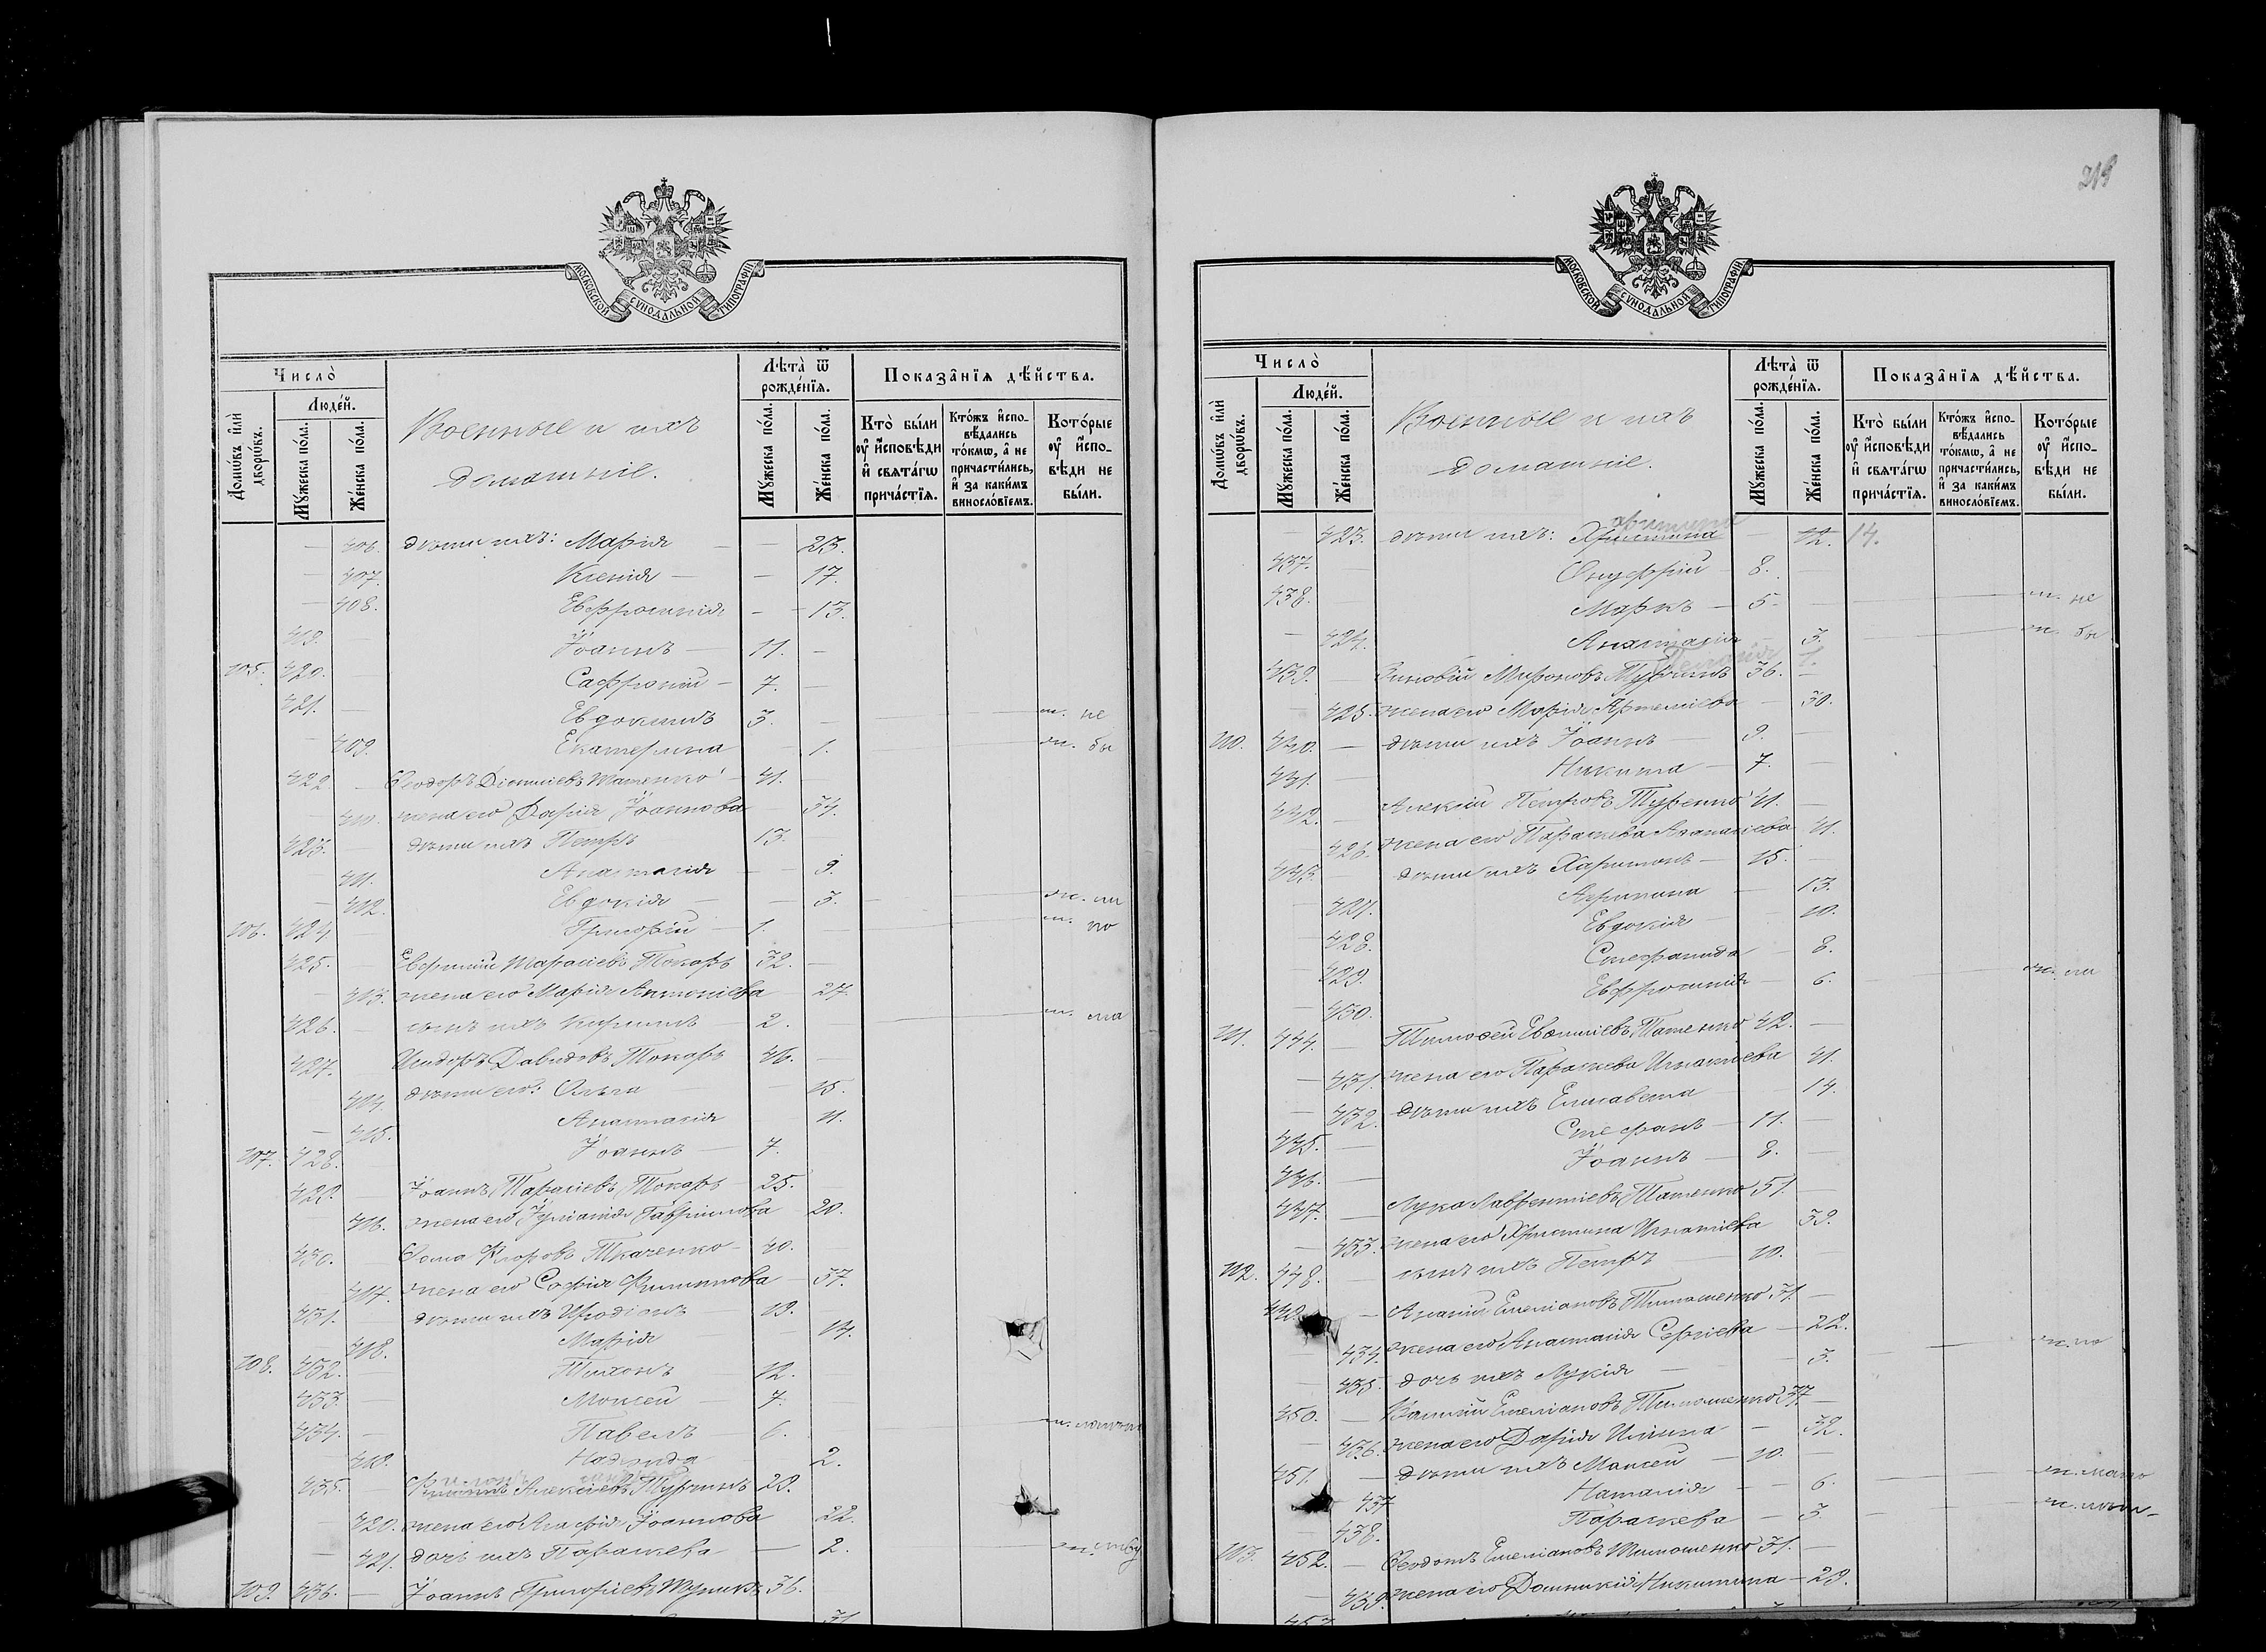 МОСКОВСКОЙ СѴНОДАЛЬНОЙ ТИПОГРАФІИ
Число̀
Людей.
Домѡвъ и҆лѝ дворѡвъ.
Мꙋжеска пола.
Женска пола.
Военные и ихъ
домашніе.
Лѣта̀ ѿ рожденїѧ.
Мꙋжеска пола.
Женска пола.
Показанїѧ дѣйства.
Кто̀ были ᲂу҆ и҆сповѣди и҆ свѧтагѡ причастїѧ.
Ктожъ и҆сповѣдались токмѡ, а҆ не причастились, и҆ за какимъ винословїемъ.
Которые ᲂу҆ и҆сповѣди не были.
406. дѣти ихъ: Марія — — 23.
407. Ксенія — — 17.
408. Евфросинія — — 13.
419. Іоаннъ — 11. —
105. 420. Сафроній — 7. —
421. Евдокимъ 3. — м. не
409. Екатерина — 1. ж. бы
422 — Ѳеодоръ Діонисіевъ Татенко — 41. —
410. жена его Дарія Іоаннова 34.
423. дѣти ихъ Петръ 13.
411. Анастасія — — 9.
412. Евдокія — — 3. ж. ли
106. 424. Григорій — 1. — м. по
425. Евфимій Тарасіевъ Токарь 32. —
413. жена его Марія Антоніева 27.
426. сынъ ихъ Кириллъ — 2. м. ма
427. Исидоръ Давидовъ Токарь 46. —
414. дѣти его: Ольга 15.
415. Анастасія 11.
107. 428. Іоаннъ — 7.
429. Іоаннъ Тарасіевъ Токарь — 25.
416. жена его Іуліанія Гавріилова 20.
430. Ѳома Флоровъ Ткаченко — 40. —
417. жена его Софія Филиппова — 37.
431. дѣти ихъ Иродіонъ — 19.
418. Марія — 14.
108. 432. Тихонъ 12.
433. Моисей — 7.
434. Павелъ 6.
419. Надежда — 2.
435. — Алексіевъ 29.
420. жена его Агафія Іоаннова 22.
421. дочь ихъ Параскева — — 2.
109. 436. — Іоаннъ Григоріевъ 36.
31
219
МОСКОВСКОЙ СѴНОДАЛЬНОЙ ТИПОГРАФІИ
Число̀
Людей.
Домѡвъ и҆лѝ дворѡвъ.
Мꙋжеска пола.
Женска пола.
Военные и ихъ
домашніе.
Лѣта̀ ѿ рожденїѧ.
Мꙋжеска пола.
Женска пола.
Показанїѧ дѣйства.
Кто̀ были ᲂу҆ и҆сповѣди и҆ свѧтагѡ причастїѧ.
Ктожъ и҆сповѣдались токмѡ, а҆ не причастились, и҆ за какимъ винословїемъ.
Которые ᲂу҆ и҆сповѣди не были.
— 423. дѣти ихъ: Христина — 12. 14.
437. Онуфрій — 8. —
438. Маркъ — 5. — м. не
— 424. Анастасія — 3. ж. бы
439. — Зиновій Мироновъ 36. —
— 425. жена его Марія Артеміева — 30.
110. 440. — дѣти ихъ Іоаннъ — 9. —
441. Никита — 7. —
442. — Алексій Петровъ 41. —
— 426. жена его Параскева Аѳанасіева 41.
443. — дѣти ихъ Харитонъ — 15. —
427. Агрипина — 13.
428. Евдокія 10.
429. Стефанида — 8.
430. Евфросинія — 6. ж. ли
111. 444. — Тимоѳей Татенко 42. —
— 431. жена его Параскева Игнатіева 41.
— 432. дѣти ихъ Елисавета 14.
445. — Стефанъ — 11. —
446. — Іоаннъ — 8. —
447. — Лука Лаврентіевъ Татенко 51. —
— 433. жена его Христина Игнатіева 39.
112. 448. — сынъ ихъ Петръ — 10.
449. — Ананій Емеліановъ Тимошенко 31. —
434. жена его Анастасія Сергіева — 22.
— 435. дочь ихъ Лукія — 3. ж. по
450. — Василій Емеліановъ Тимошенко 37. —
— 436. жена его Дарія Ильина — 32.
451. — дѣти ихъ Моисей — 10.
437 Наталія — — 6. ж. мало
438. Параскева — 3. —
113. 452. — Ѳеодотъ Емеліановъ Тимошенко 31. —
— 439. жена его Домникія Никитина — 29.
453